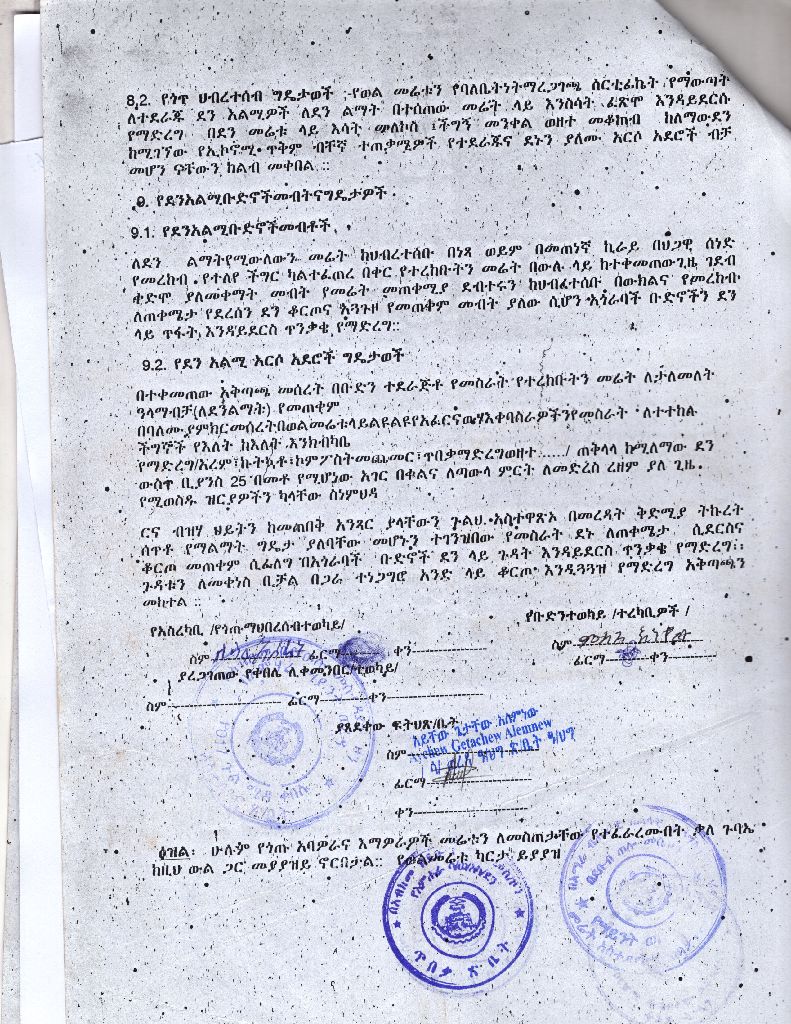 8.2. የጎጥ ህብረተሰብ ግዴታወች ;-የወል መሬቱን የባለቤትነትማረጋገጫ ሰርቲፊኬት የማውጣት
ለተደራጁ ደን አልሚዎች ለደን ልማት በተሰጠው መሬት ላይ እንስሳት ፈጽሞ እንዳይደርሱ
የማድረግ በደን መሬቱ ላይ እሳት መለኮስ ፤ችግኝ መንቀል ወዘተ መቆጠብ ከለማውደን
ከሚገኘው የኢኮኖሚ ጥቅም ብቸኛ ተጠቃሚዎች የተደራጁና ደኑን ያለሙ አርሶ አደሮች ብቻ
መሆን ናቸውን ከልብ መቀበል ::
9. የደንአልሚቡድኖችመብትናግዴታዎች
9.1. የደንአልሚቡድኖችመብቶች
ለደን ልማትየሚውለውን መሬት ከህብረተሰቡ በነጻ ወይም በመጠነኛ ኪራይ በህጋዊ ሰነድ
የመረከብ የተለየ ችግር ካልተፈጠረ በቀር የተረከቡትን መሬት በውሉ ላይ ከተቀመጠውጊዜ ገደብ
ቀድሞ ያለመቀማት መብት የመሬት መጠቀሚያ ደብተሩን ከህብፈተሰቡ በውክልና የመረከብ
ለጠቀሜታ የደረሰን ደን ቆርጦና አጓጉዞ የመጠቀም መብት ያለው ሲሆን አጎራባች ቡድኖችን ደን
ላይ ጥፋት እንዳይደርስ ጥንቃቄ የማድረግ::
9.2. የደን አልሚ አርሶ አደሮች ግዴታወች
በተቀመጠው አቅጣጫ መሰረት በቡድን ተደራጅቶ የመስራት የተረከቡትን መሬት ለታለመለት
ዓላማብቻ(ለደንልማት) የመጠቀም
በባለሙያምክርመሰረትበወልመሬቱላይልዩልዩየአፈርናውሃእቀባስራዎችንየመስራት ለተተከሉ
ችግኞች የእለት ከእለት እንክብካቤ
የማድረግ/አረም፣ኩትኳቶ፣ኮምፖስትመጨመር፣ጥበቃማድረግወዘተ....../ ጠቅላላ ከሚለማው ደን
ውስጥ ቢያንስ 25 በመቶ የሚሆነው አገር በቀልና ለጣውላ ምርት ለመድረስ ረዘም ያለ ጊዜ
የሚወስዱ ዝርያዎችን ካላቸው ስነምህዳ
ርና ብዝሃ ህይትን ከመጠበቅ አንጻር ያላቸውን ጉልህ አስተዋጽኦ በመረዳት ቅድሚያ ትኩረት
ሰጥቶ የማልማት ግዴታ ያለባቸው መሆኑን ተገንዝበው የመስራት ደኑ ለጠቀሜታ ሲደርስና
ቆርጦ መጠቀም ሲፈለግ በአጎራባች ቡድኖች ደን ላይ ጉዳት እንዳይደርስ ጥንቃቄ የማድረግ::
ጉዳቱን ለመቀነስ ቢቻል በጋራ ተነጋግሮ አንድ ላይ ቆርጦ እንዲጓጓዝ የማድረግ አቅጣጫን
መከተል ::
የአስረካቢ /የጎጡማህበረሰብተወካይ/ የቡድንተወካይ /ተረካቢዎች /
ስም ፊርማ ቀን
ስም
ፊርማ ቀን
ያረጋገጠው የቀበሌ ሊቀመንበር/ተወካይ/
ስም ፊርማ ቀን
ያጸደቀው ፍትህጽ/ቤት
አያቸው ጌታቸው አለምነው
ስም Ayehen Getachew Alemnew
ፊርማ
ቀን
ዕዝል: ሁሉም የጎጡ አባዎራና እማዎራዎች መሬቱን ለመስጠታቸው የተፈራረሙበት ቃለ ጉባኤ
ከዚህ ውል ጋር መያያዝይ ኖርበታል:: የወልመሬቱ ካርታ ይያያዝ
ጥበቃ ጽ/ቤት